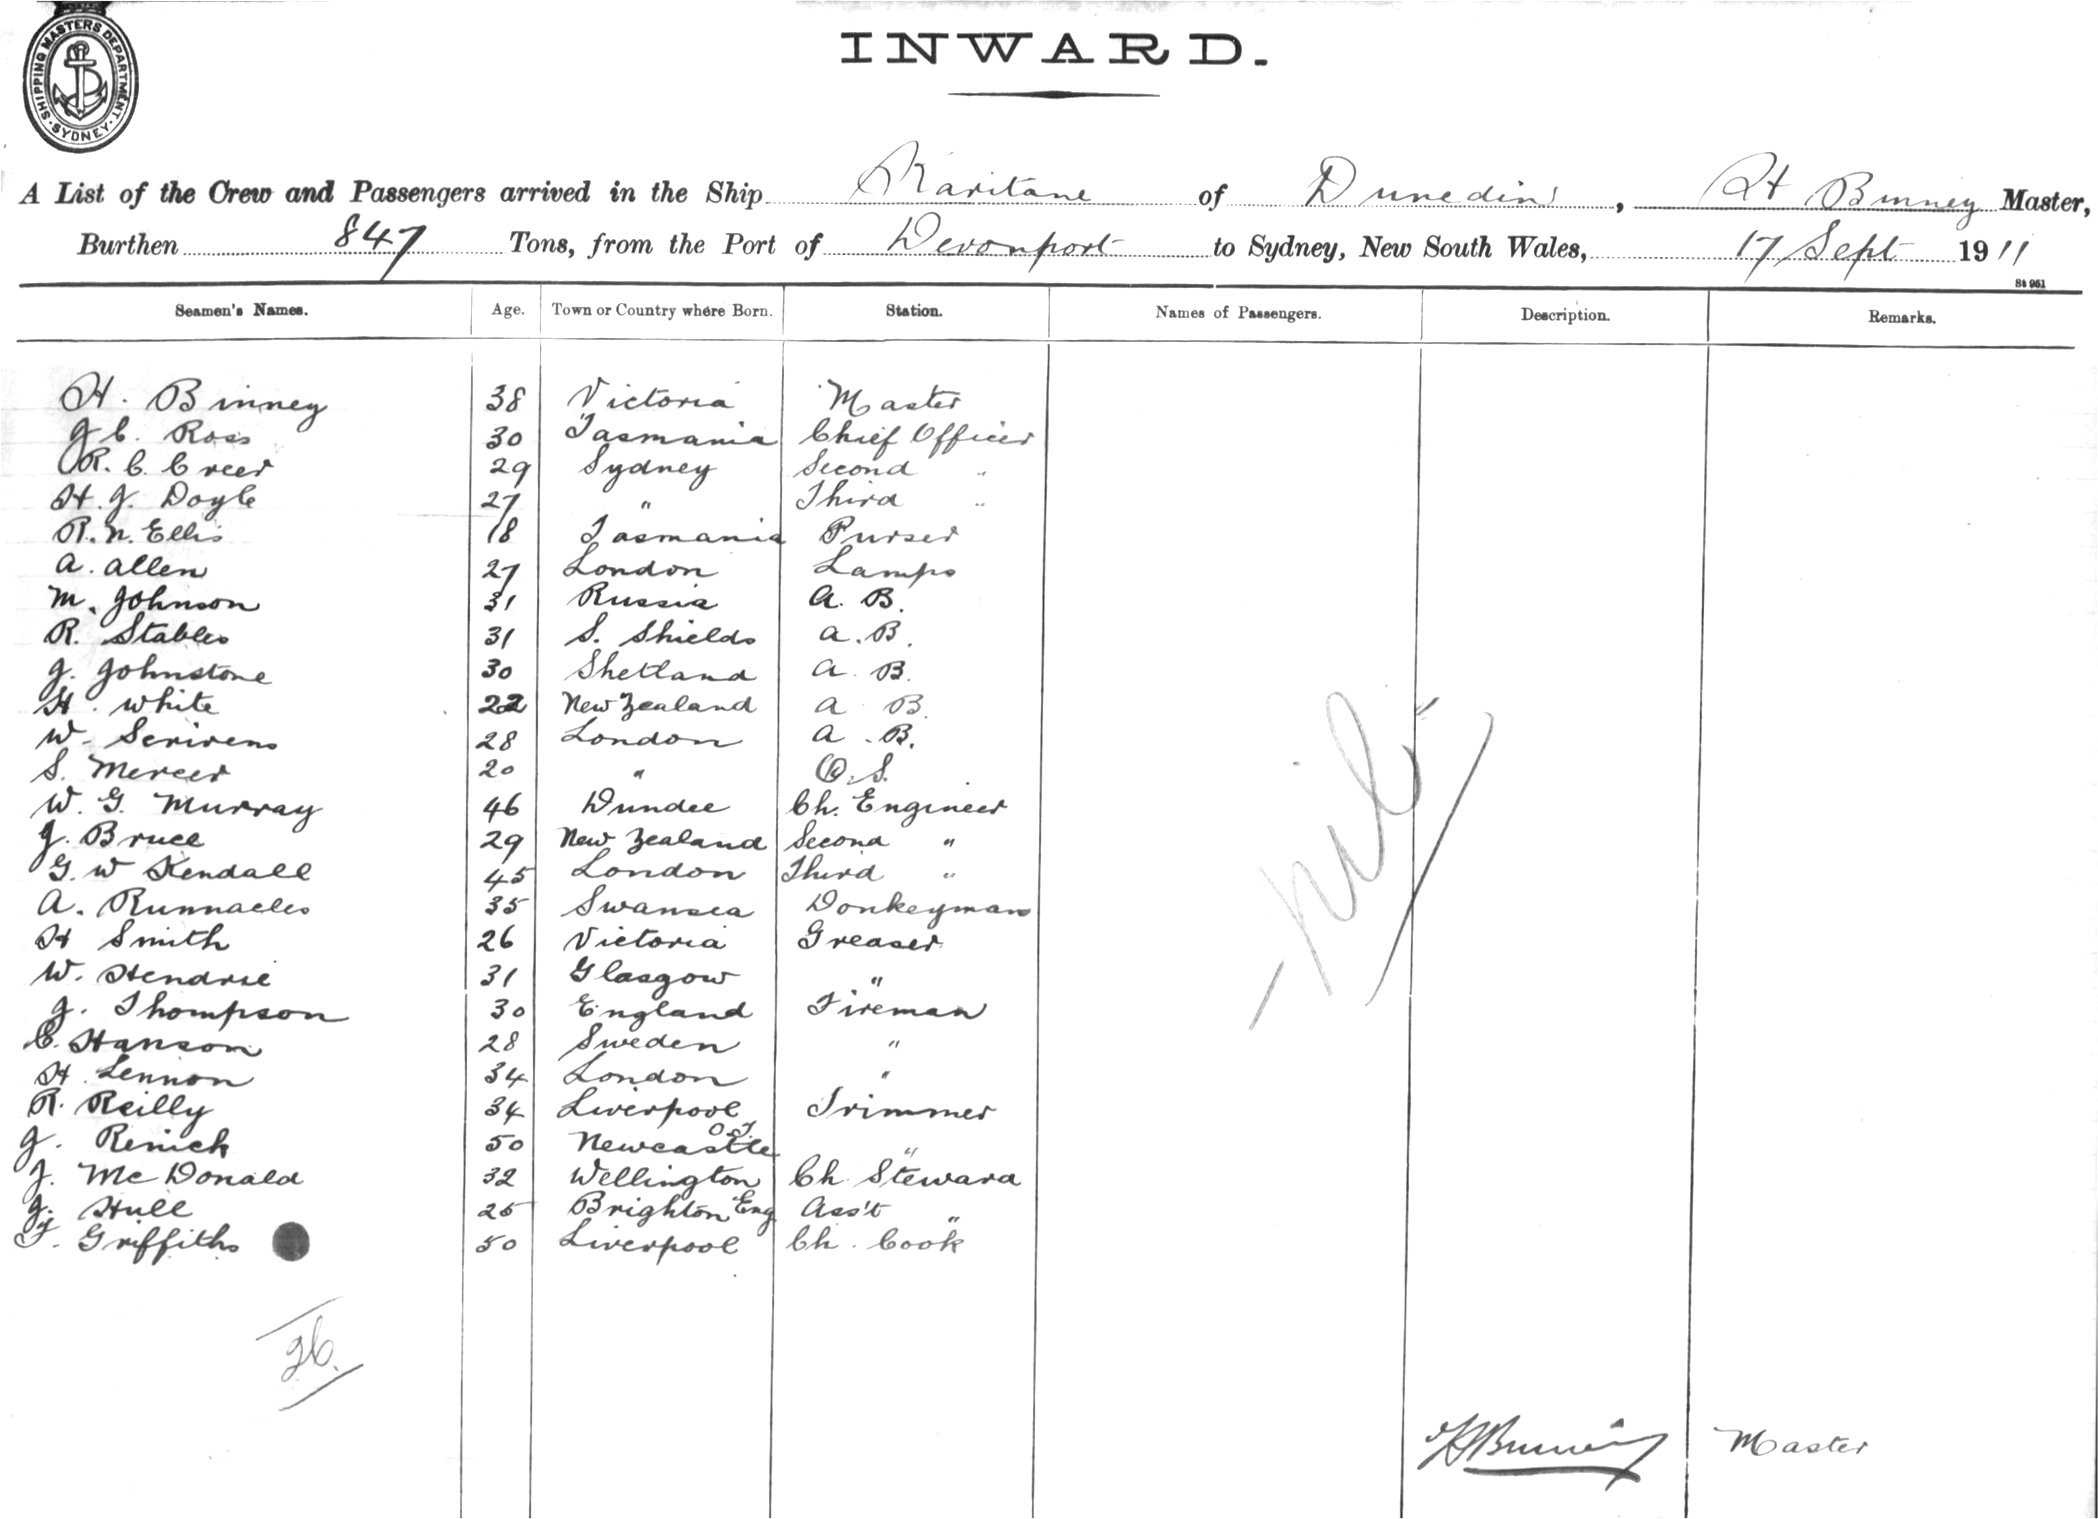 SHIPPING MASTERS DEPARTMENT. SYDNEY.
INWARD.
A List of the Crew and Passengers arrived in the Ship Karitane of Dunedin, H Binney Master,
Burthen 847 Tons, from the Port of Devonport to Sydney, New South Wales, 17 Sept 1911
St 961
Seamen's Names. Age. Town or Country where Born. Station. Names of Passengers. Description. Remarks.
H. Binney 38 Victoria Master
J C. Ross 30 Tasmania Chief Officer
R. C. Creer 29 Sydney Second "
H. J. Doyle 27 " Third "
R. N. Ellis 18 Tasmania Purser
A. Allen 27 London Lamps
M. Johnson 31 Russia A. B.
R. Stables 31 S. Shields A. B.
J. Johnstone 30 Shetland A B.
H. White 22 New Zealand A B.
W. Scrivens 28 London A. B.
S. Mercer 20 " O. S.
W. G. Murray 46 Dundee Ch. Engineer
J. Bruce 29 New Zealand Second "
G. W Kendall 45 London Third "
A. Runnacles 35 Swansea Donkeyman
H Smith 26 Victoria Greaser
W. Hendrie 31 Glasgow "
J. Thompson 30 England Fireman
C. Hanson 28 Sweden "
H. Lennon 34 London "
R. Reilly 34 Liverpool Trimmer
J. Renick 50 Newcastle "
J. McDonald 32 Wellington Ch. Steward
J. Hull 25 Brighton Eng Ass't "
F. Griffiths 50 Liverpool Ch. Cook
- nil -
26.
H Binney Master